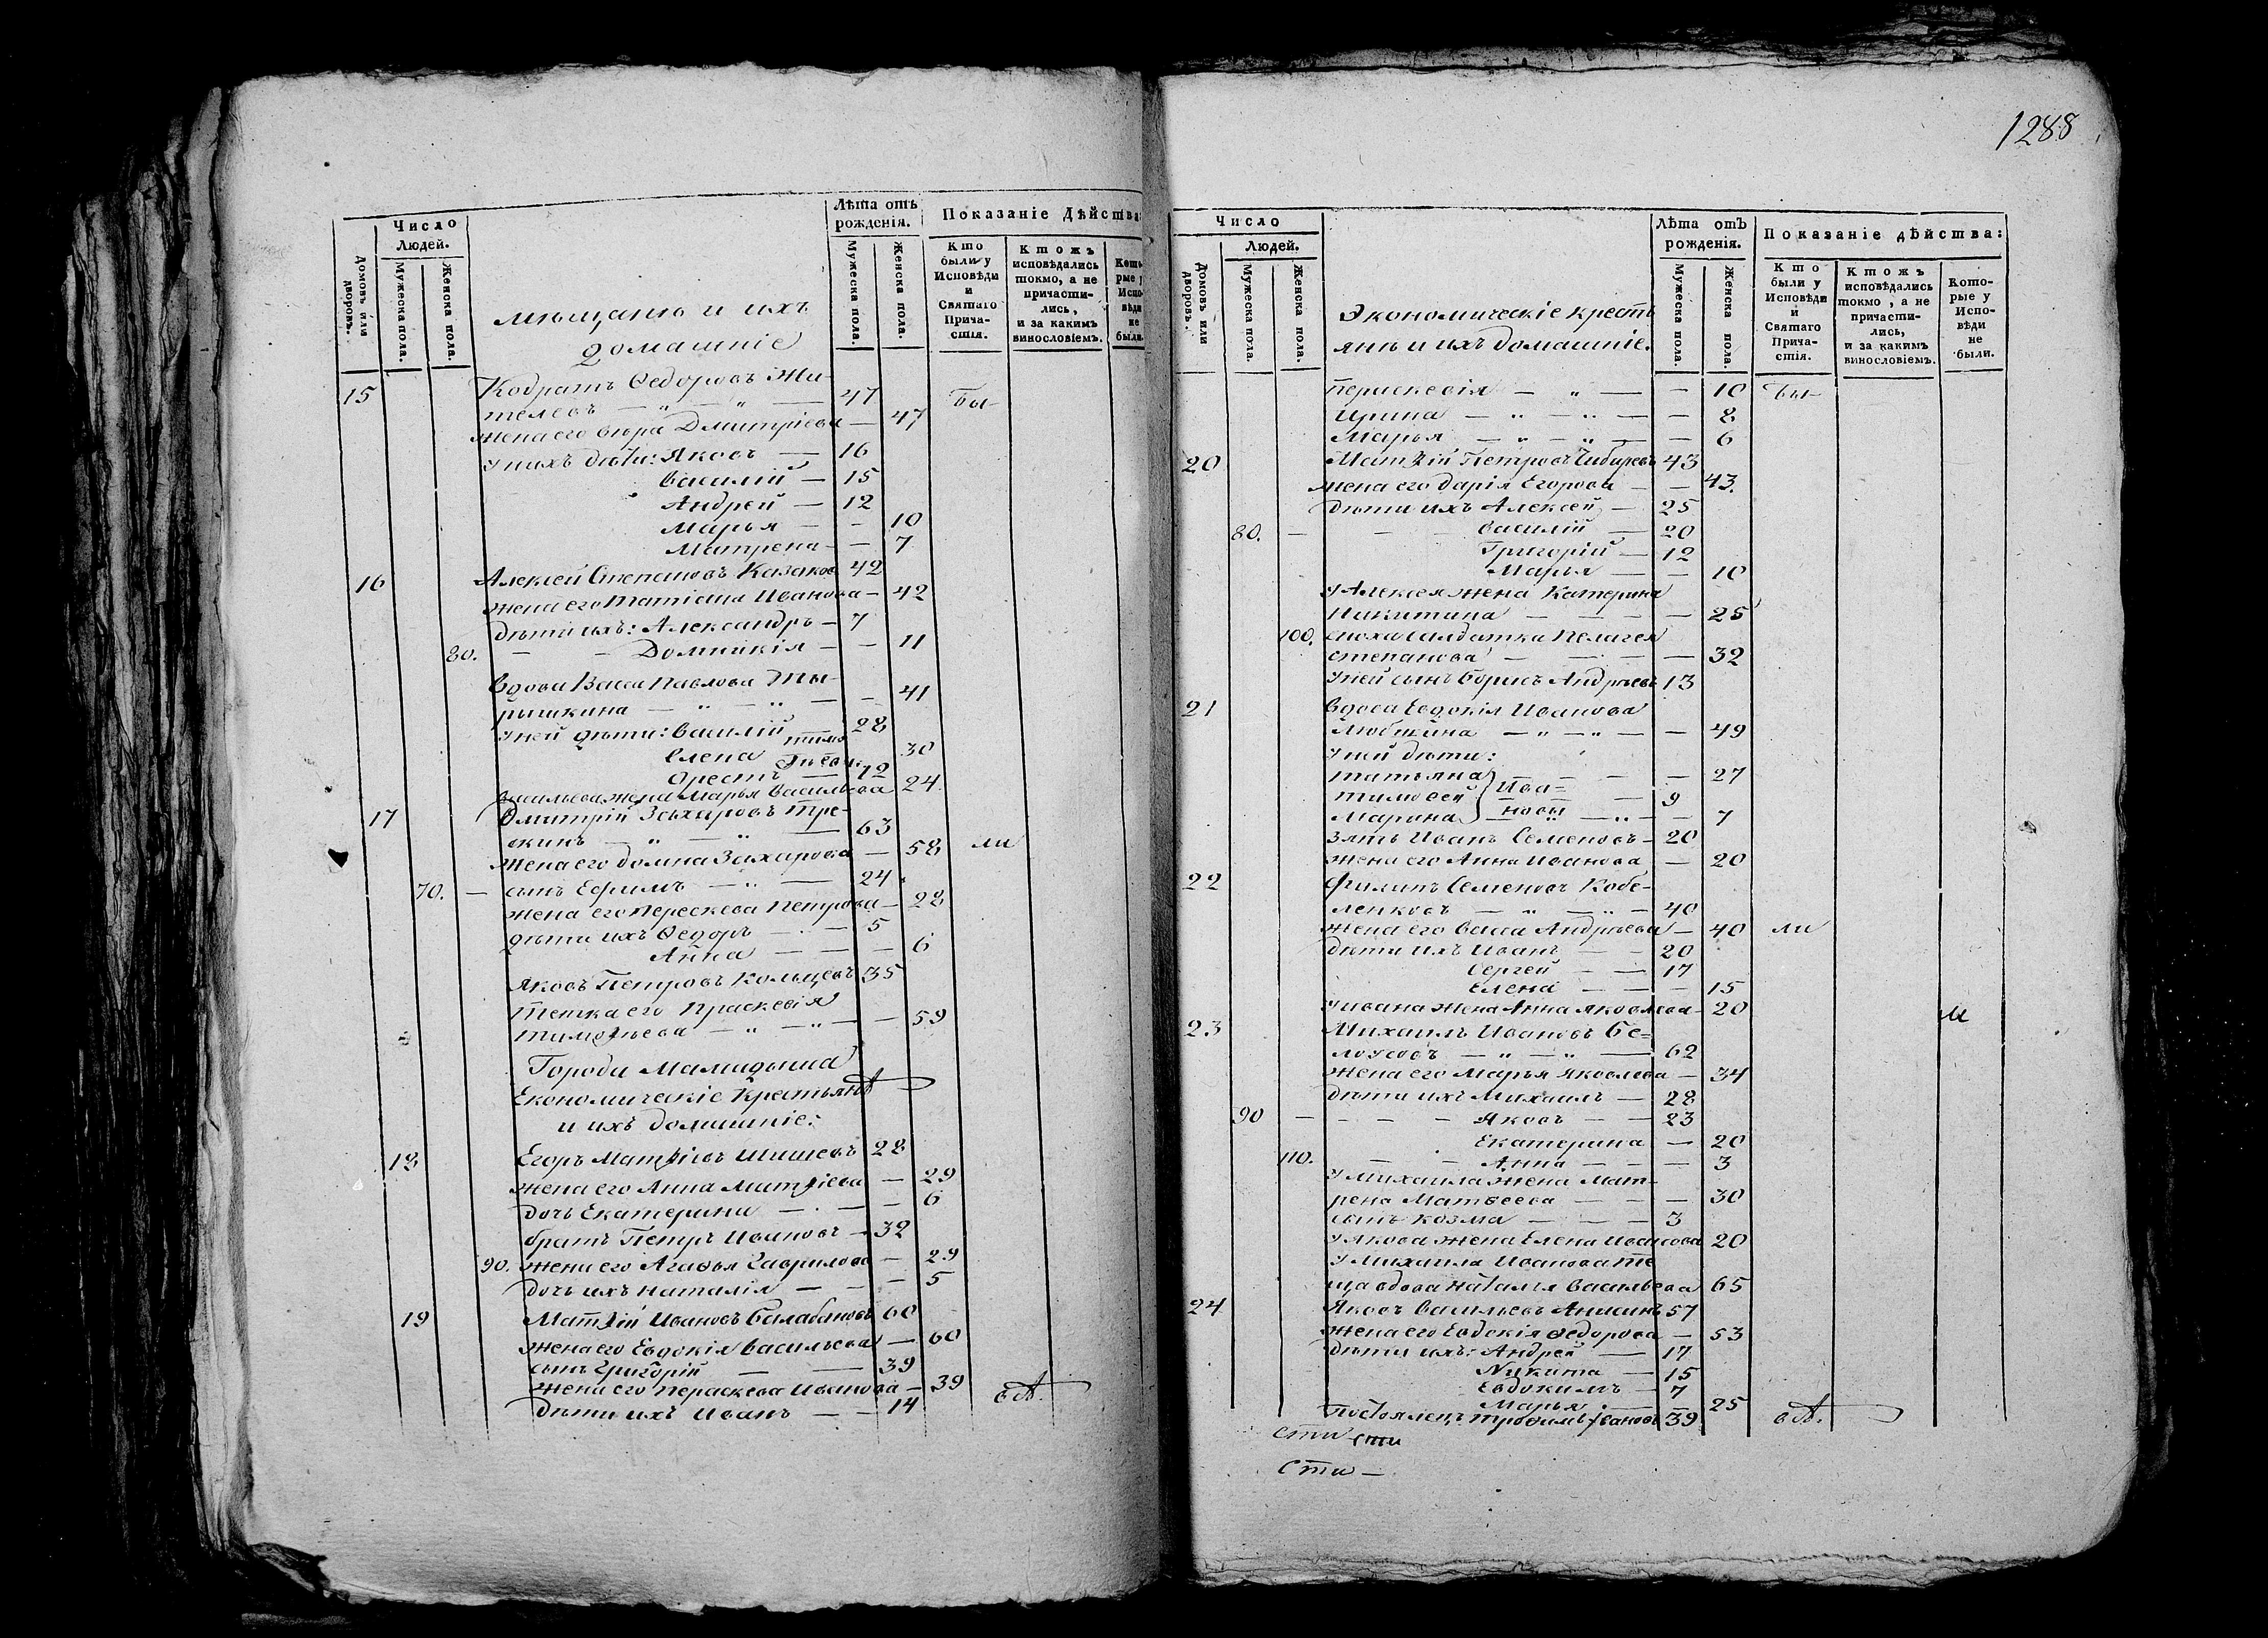 Число
Людей.
Домовъ или дворовъ.
Мужеска пола.
Женска пола.
мѣщанѣ и ихъ
домашніе
Лѣта отъ
рожденія.
Мужеска пола.
Женска пола.
Показаніе Дѣйства:
Кто
были у
Исповѣди
и
Святаго
Прича-
стія.
Ктожъ
исповѣдались
токмо, а не
причасти-
лись,
и за какимъ
винословіемъ.
15 Кодратъ Ѳедоровъ Жи-
телевъ — „ — „ — 47 Бы-
жена его вѣра Дмитріева — 47
у нихъ дѣти: Яковъ — 16
Василій — 15
Андрей — 12
Марья — - 10
Матрена - — 7
16 Алексей Степановъ Казаков 42
жена его Татіана Иванова — 42
дѣти ихъ: Александръ — 7
80. — - Домникія — — 11
вдова Васса Павлова Ты-
рышкина — „ — „ — - 41
у ней дѣти: Василій 28
Елена 30
Орестъ — 12
васильева жена Марья Васильева 24
17 Дмитрій Захаровъ Тре-
63
жена его домна Захарова — 58 ли
70. — сынъ Ефримъ — „ — 24
жена его перескева Петрова — 28
дѣти ихъ Ѳедоръ — . — 5
Анна — — — 6
Яковъ Петровъ Кольцевъ 35
Тетка его Праскевія
тимоѳѣева — „ — „ — — 59
Города Мамадыша
Економическіе Крестьянѣ
и ихъ домашніе:
18 Егоръ Матѳіевъ Шишевъ 28
жена его Анна Митріева — 29
дочь Екатерина — . — — 6
братъ Петръ Ивановъ — 32
90. жена его Агаѳья Гаврилова — 29
дочь ихъ наталія — — — 5
19 Матѳій Ивановъ Балабановъ 60
жена его Евдокія Васильева — 60
сынъ Григорій — — 39
жена его пераскева Иванова — 39
дѣти ихъ Иванъ — — 14
1288
Число
Людей.
Домовъ или дворовъ.
Мужеска пола.
Женска пола.
Экономическіе крестъ
янѣ и ихъ домашніе.
Лѣта отъ
рожденія.
Мужеска пола.
Женска пола.
Показаніе дѣйства:
Кто
были у
Исповѣди
и
Святаго
Прича-
стія.
Ктожъ
исповѣдались
токмо, а не
причасти-
лись,
и за какимъ
винословіемъ.
Кото-
рые у
Испо-
вѣди
не
были.
перискевія — „ — — 10 Бы-
Ирина — „ — „ — — 8
Марья — „ — „ — — 6
20 Матѳій Петровъ Чибиревъ 43
жена его дарія Егорова — — 43.
дѣти ихъ Алексей — 25
80. — — — василій — 20
Григорій — 12
Марья — — 10
у Алексея жена Катерина
Никитина — — — — 25
100. сноха салдатка Пелагея
степанова — — — — 32
у ней сынъ борисъ Андрѣевъ 13
21 вдова Евдокія Иванова
— „ — „ — — 49
у ней дѣти:
татьяна — — — — 27
тимоѳей Ива= — 9
Марина новы — „ — — 7
зять Иванъ Семеновъ — 20
жена его Анна Иванова — 20
22 Филипъ Семеновъ Кобе-
ленковъ — „ — „ — 40
жена его Васса Андрѣева — 40 ли
дѣти ихъ Иванъ — — 20
Сергей — — 17
Елена — — — 15
у ивана жена Анна яковлева — 20
23 Михаилъ Ивановъ Бе=
лоусовъ — „ — „ — 62
жена его Марья яковлева — 34
дѣти ихъ Михаилъ — 28
90 — — — — Яковъ — — 23
Екатерина — 20
110. — - Анна — — — 3
у михаила жена Мат-
рена Матвеева — — — 30
сынъ козма — — — 3
у Якова жена Елена Иванова 20
у Михаила Иванова те
ща вдова Наталья Васильева 65
24 Яковъ Васильевъ Анисинъ 57
жена его Евдокія ѳедорова — 53
дѣти ихъ: Андрей — 17
Никита — 15
Евдокимъ — 7
Марья . — — 25
постоялецъ трофимъ Ивановъ 39
сти сти
сти —